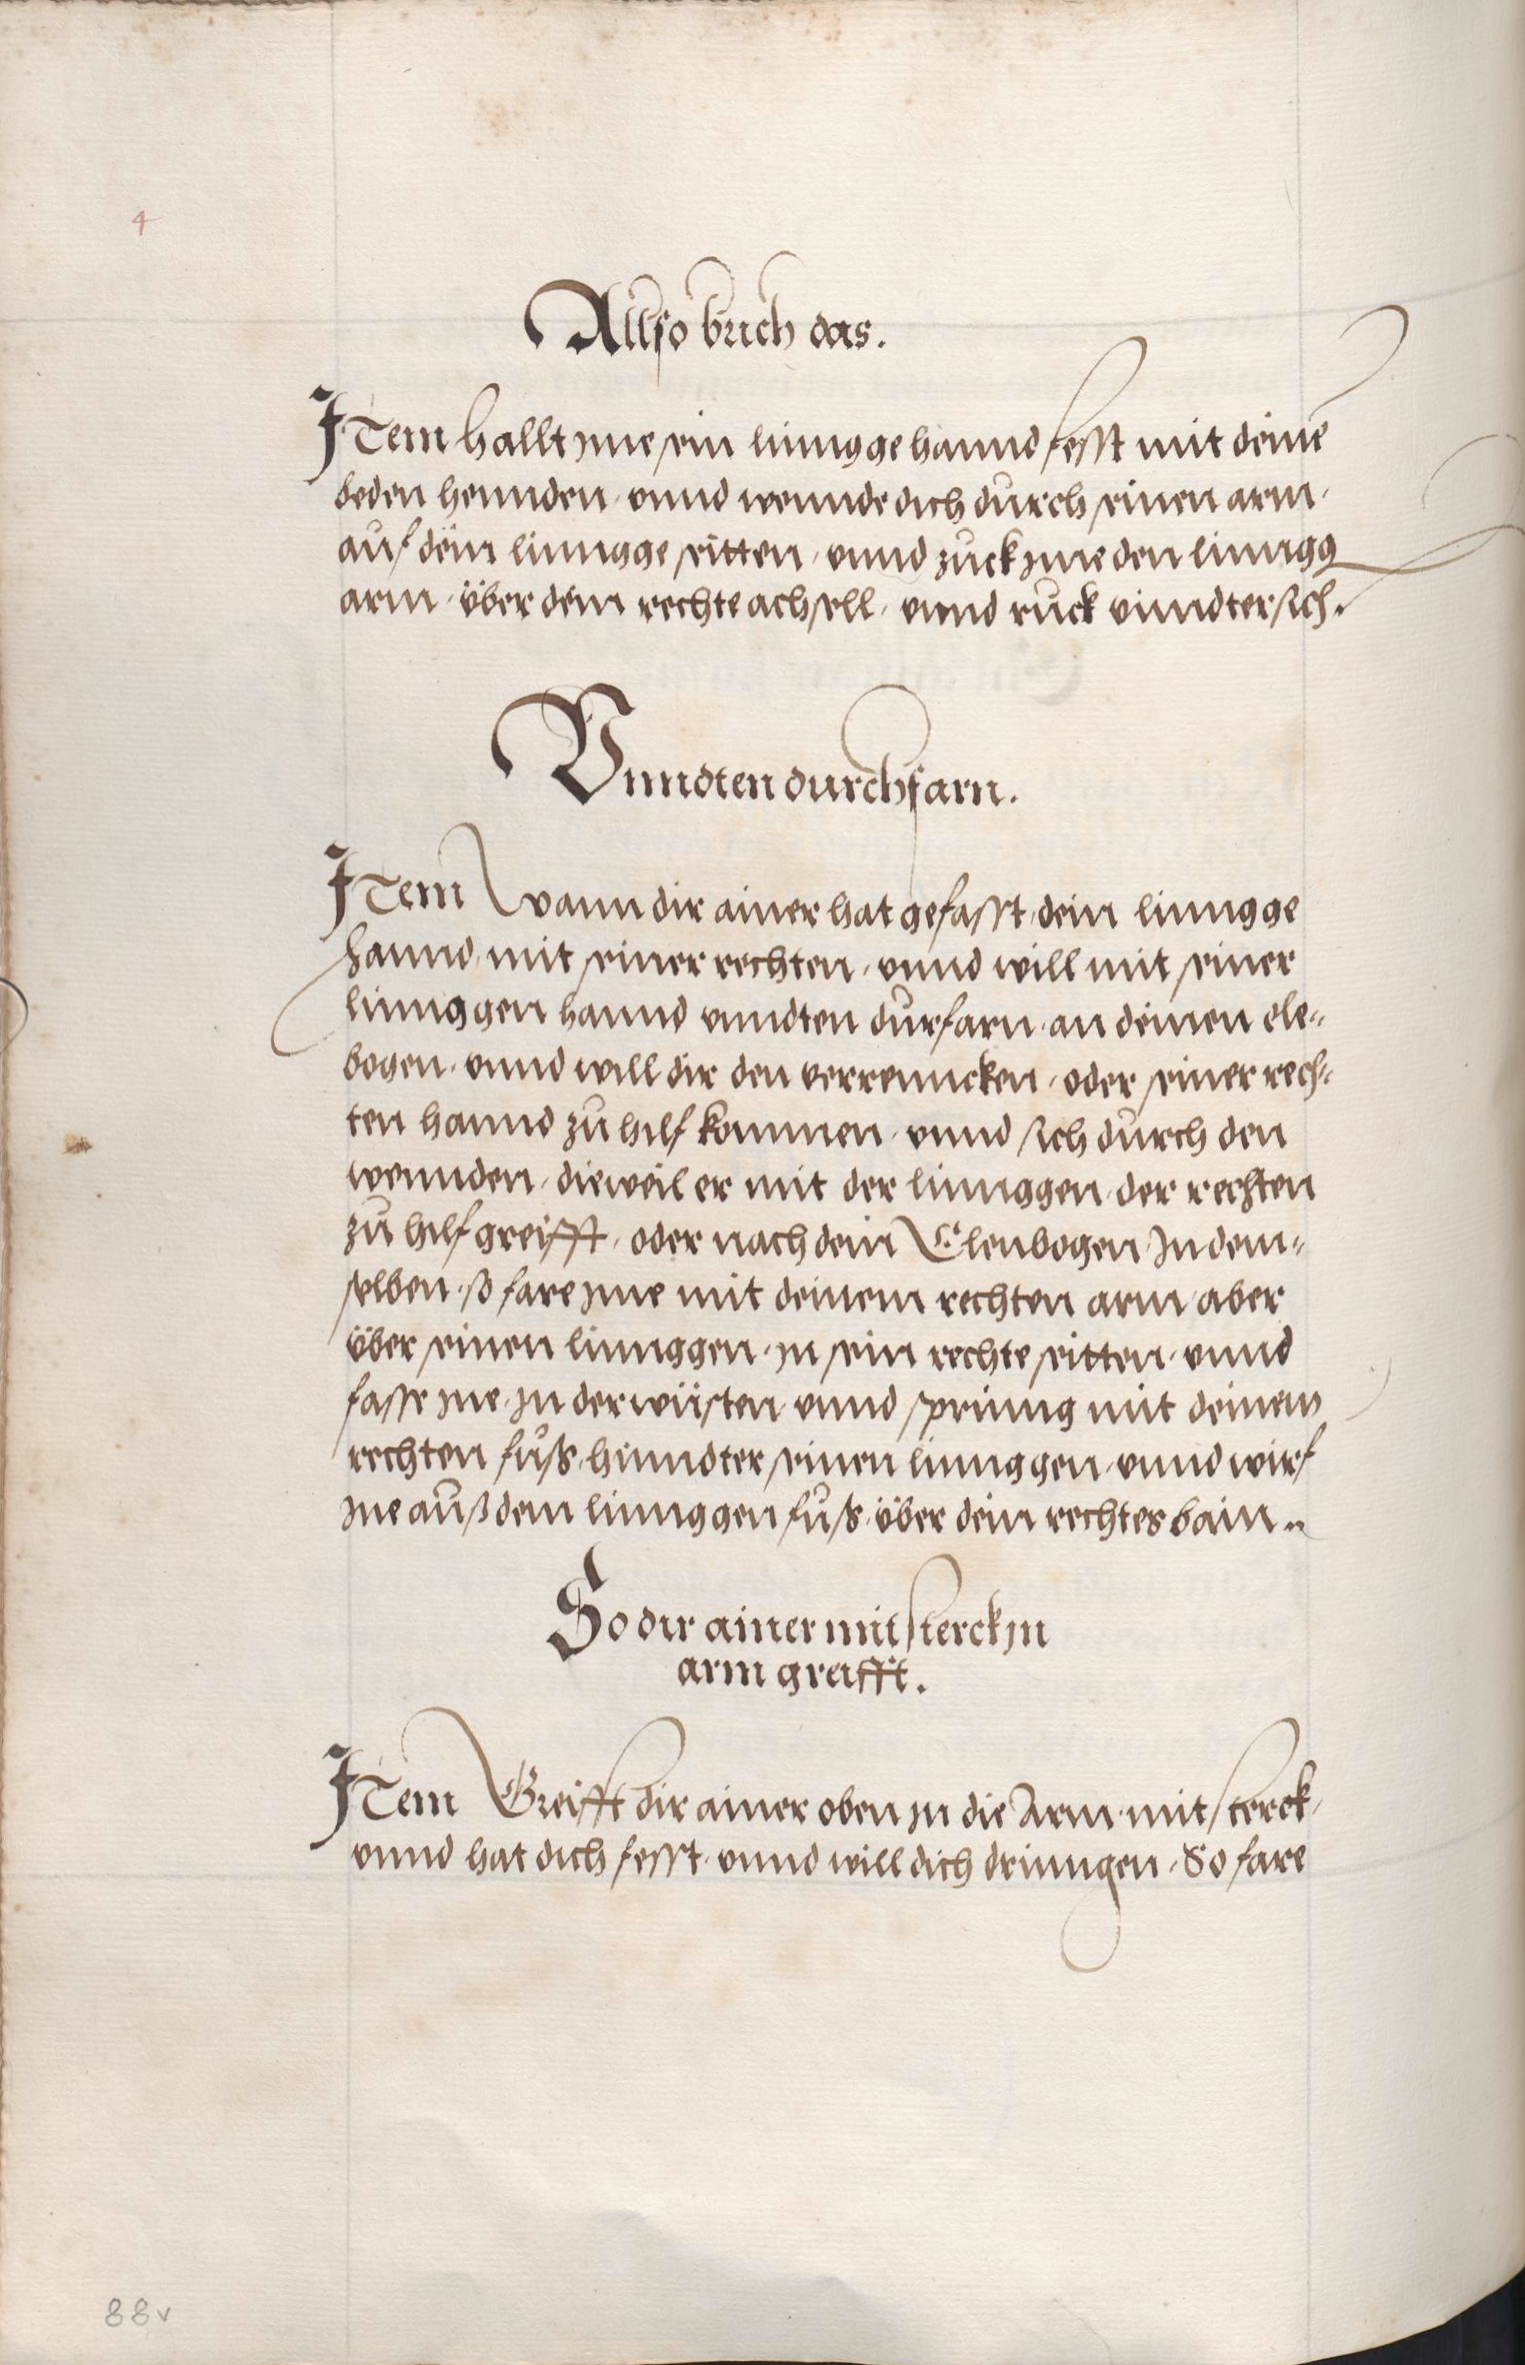 4
Allso brich das.
Item hallt jme sein linngge hannd fesst mit deinē
beden hennden, vnnd wennde dich durch seinen arm,
auf dein linngge seitten, vnnd zuck jme den linngg
arm, über dein rechte achsell, vnnd ruck vnndtersich.
Vnndten durchfarn.
Item Wann dir ainer hat gefasst, dein linngge
hannd, mit seiner rechten, vnnd will mit seiner
linnggen hannd vnndten durfarn, an deinen ele⸗
bogen, vnnd will dir den verrenncken, oder seiner rech⸗
ten hannd zu hilf kommen, vnnd sich durch den
wennden, dieweil er mit der linnggen, der rechten
zu hilf greifft, oder nach dein Elenbogen, In dem⸗
selben, so fare jme mit deinem rechten arm, aber
über seinen linnggen, jn sein rechte seitten, vnnd
fasse jne, jn der wüsten, vnnd sprinng mit deinem
rechten fuß, hinndter seinen linnggen, vnnd wirf
jne auß dem linnggen fuß, über dein rechtes bain.
So dir ainer mit sterck jn
arm greifft.
Item Greifft dir ainer oben jn die Arm, mit sterck,
vnnd hat dich fesst, vnnd will dich drinngen, So fare
88v